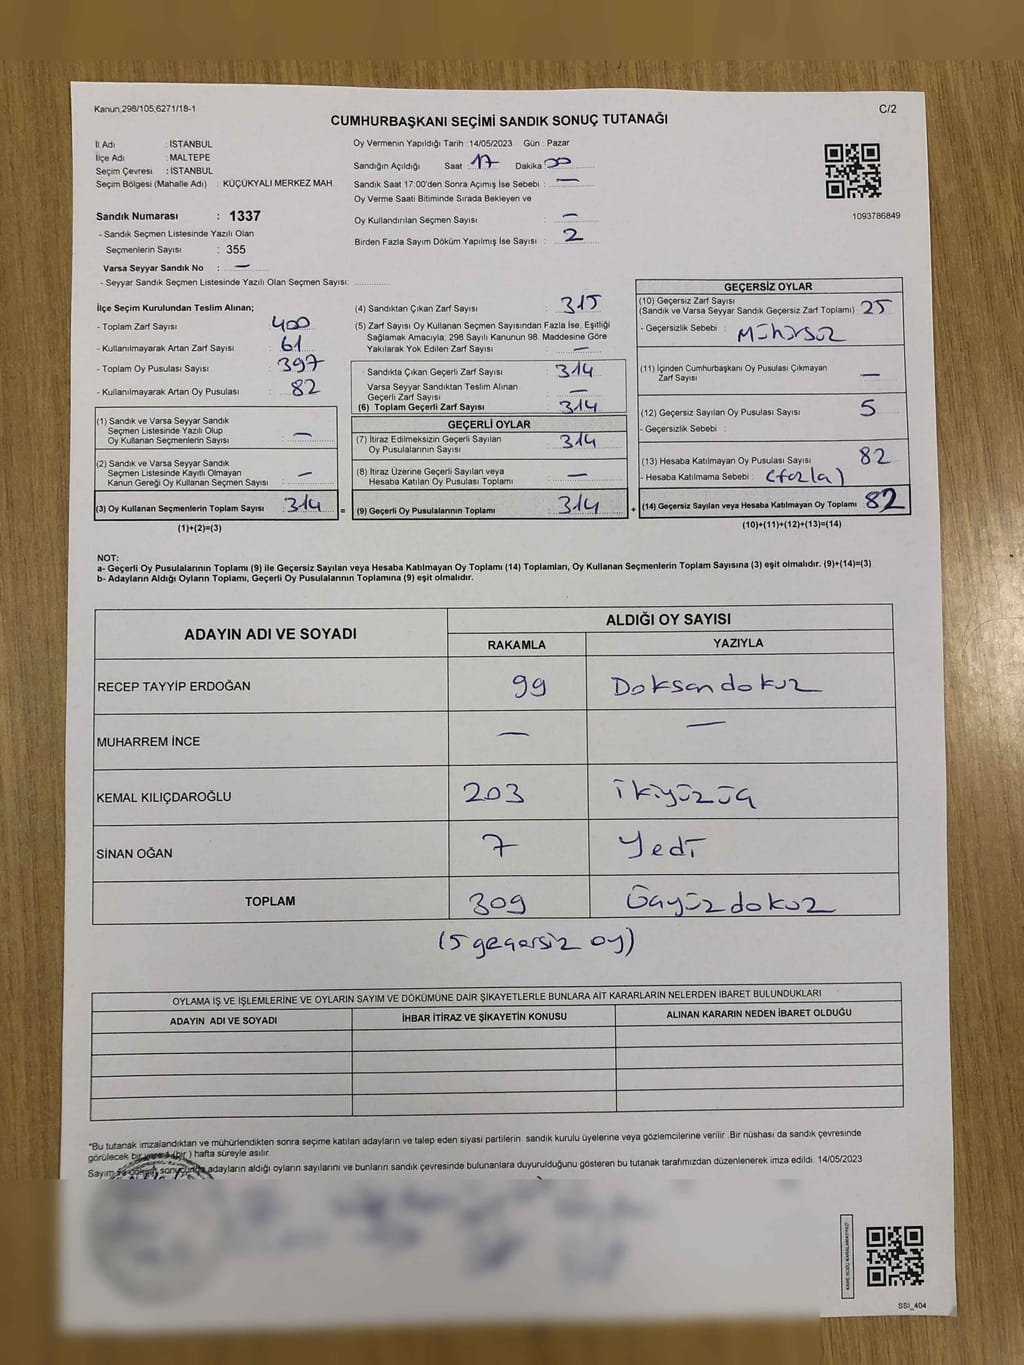 Kanun;298/105;6271/18-1
C/2
CUMHURBAŞKANI SEÇİMİ SANDIK SONUÇ TUTANAĞI
İl Adı : İSTANBUL
İlçe Adı : MALTEPE
Seçim Çevresi : İSTANBUL
Seçim Bölgesi (Mahalle Adı) : KÜÇÜKYALI MERKEZ MAH.
Sandık Numarası : 1337
- Sandık Seçmen Listesinde Yazılı Olan
Seçmenlerin Sayısı : 355
Varsa Seyyar Sandık No : —
- Seyyar Sandık Seçmen Listesinde Yazılı Olan Seçmen Sayısı:
Oy Vermenin Yapıldığı Tarih : 14/05/2023 Gün : Pazar
Sandığın Açıldığı Saat : 17 Dakika : 00
Sandık Saat 17:00'den Sonra Açımış İse Sebebi : —
Oy Verme Saati Bitiminde Sırada Bekleyen ve
Oy Kullandırılan Seçmen Sayısı : —
Birden Fazla Sayım Döküm Yapılmış İse Sayısı : 2
1093786849
İlçe Seçim Kurulundan Teslim Alınan;
- Toplam Zarf Sayısı : 400
- Kullanılmayarak Artan Zarf Sayısı : 61
- Toplam Oy Pusulası Sayısı : 397
- Kullanılmayarak Artan Oy Pusulası : 82
(1) Sandık ve Varsa Seyyar Sandık
Seçmen Listesinde Yazılı Olup
Oy Kullanan Seçmenlerin Sayısı : —
(2) Sandık ve Varsa Seyyar Sandık
Seçmen Listesinde Kayıtlı Olmayan
Kanun Gereği Oy Kullanan Seçmen Sayısı : —
(3) Oy Kullanan Seçmenlerin Toplam Sayısı : 314 =
(1)+(2)=(3)
(4) Sandıktan Çıkan Zarf Sayısı : 315
(5) Zarf Sayısı Oy Kullanan Seçmen Sayısından Fazla İse, Eşitliği
Sağlamak Amacıyla; 298 Sayılı Kanunun 98. Maddesine Göre
Yakılarak Yok Edilen Zarf Sayısı : —
Sandıkta Çıkan Geçerli Zarf Sayısı : 314
Varsa Seyyar Sandıktan Teslim Alınan
Geçerli Zarf Sayısı : —
(6) Toplam Geçerli Zarf Sayısı : 314
GEÇERLİ OYLAR
(7) İtiraz Edilmeksizin Geçerli Sayılan
Oy Pusulalarının Sayısı : 314
(8) İtiraz Üzerine Geçerli Sayılan veya
Hesaba Katılan Oy Pusulası Toplamı : —
(9) Geçerli Oy Pusulalarının Toplamı : 314 +
GEÇERSİZ OYLAR
(10) Geçersiz Zarf Sayısı
(Sandık ve Varsa Seyyar Sandık Geçersiz Zarf Toplamı) : 25
- Geçersizlik Sebebi : Mühürsüz
(11) İçinden Cumhurbaşkanı Oy Pusulası Çıkmayan
Zarf Sayısı : —
(12) Geçersiz Sayılan Oy Pusulası Sayısı : 5
- Geçersizlik Sebebi :
(13) Hesaba Katılmayan Oy Pusulası Sayısı : 82
- Hesaba Katılmama Sebebi : (fazla)
(14) Geçersiz Sayılan veya Hesaba Katılmayan Oy Toplamı : 82
(10)+(11)+(12)+(13)=(14)
NOT:
a- Geçerli Oy Pusulalarının Toplamı (9) ile Geçersiz Sayılan veya Hesaba Katılmayan Oy Toplamı (14) Toplamları, Oy Kullanan Seçmenlerin Toplam Sayısına (3) eşit olmalıdır. (9)+(14)=(3)
b- Adayların Aldığı Oyların Toplamı, Geçerli Oy Pusulalarının Toplamına (9) eşit olmalıdır.
ADAYIN ADI VE SOYADI
ALDIĞI OY SAYISI
RAKAMLA YAZIYLA
RECEP TAYYİP ERDOĞAN 99 Doksandokuz
MUHARREM İNCE — —
KEMAL KILIÇDAROĞLU 203 ikiyüzüç
SİNAN OĞAN 7 Yedi
TOPLAM 309 Üçyüzdokuz
(5 geçersiz oy)
OYLAMA İŞ VE İŞLEMLERİNE VE OYLARIN SAYIM VE DÖKÜMÜNE DAİR ŞİKAYETLERLE BUNLARA AİT KARARLARIN NELERDEN İBARET BULUNDUKLARI
ADAYIN ADI VE SOYADI İHBAR İTİRAZ VE ŞİKAYETİN KONUSU ALINAN KARARIN NEDEN İBARET OLDUĞU
"Bu tutanak imzalandıktan ve mühürlendikten sonra seçime katılan adayların ve talep eden siyasi partilerin sandık kurulu üyelerine veya gözlemcilerine verilir. Bir nüshası da sandık çevresinde
görülecek bir yere 1 (bir ) hafta süreyle asılır.
Sayım ve döküm sonucunda adayların aldığı oyların sayılarını ve bunların sandık çevresinde bulunanlara duyurulduğunu gösteren bu tutanak tarafımızdan düzenlenerek imza edildi. 14/05/2023
SSİ_404